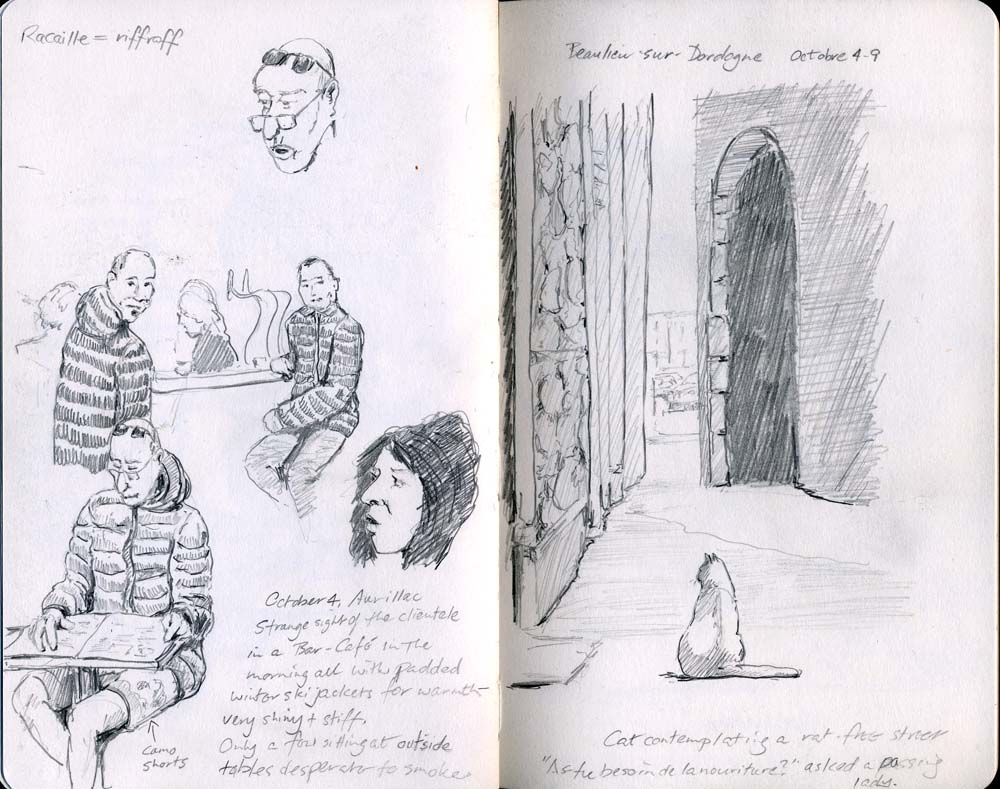 Racaille = riffraff
October 4, Aurillac
Strange sight of the clientele
in a Bar-Café in the
morning all with padded
winter ski jackets for warmth
very shiny + stiff.
Only a few sitting at outside
tables desperate to smoke
camo
shorts
Beaulieu-sur-Dordogne Octobre 4-9
Cat contemplating a rat-free street
"As tu besoin de la nouriture?" asked a passing
lady.